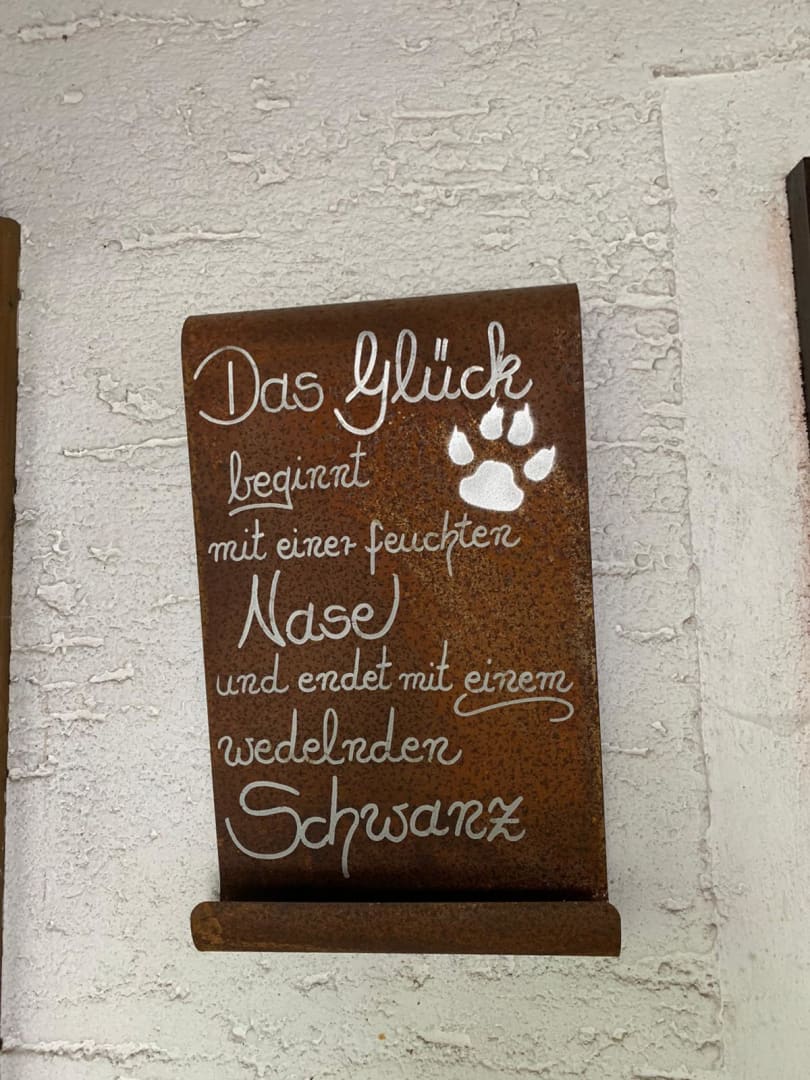 Das Glück
beginnt
mit einer feuchten
Nase
und endet mit einem
wedelnden
Schwanz